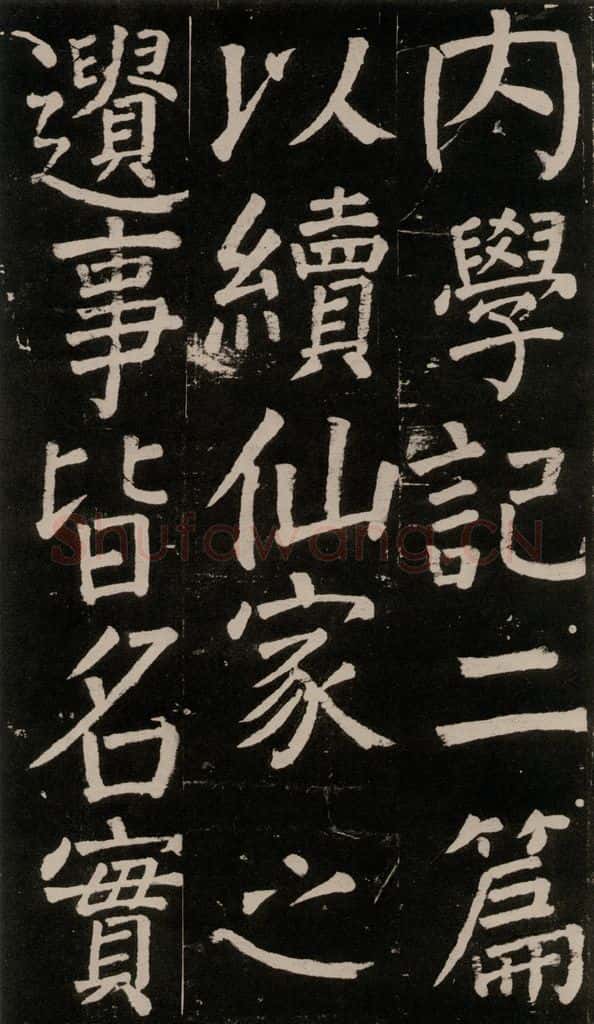 内學記二篇
以續仙家之
遺事皆名實
Shufawang.CN